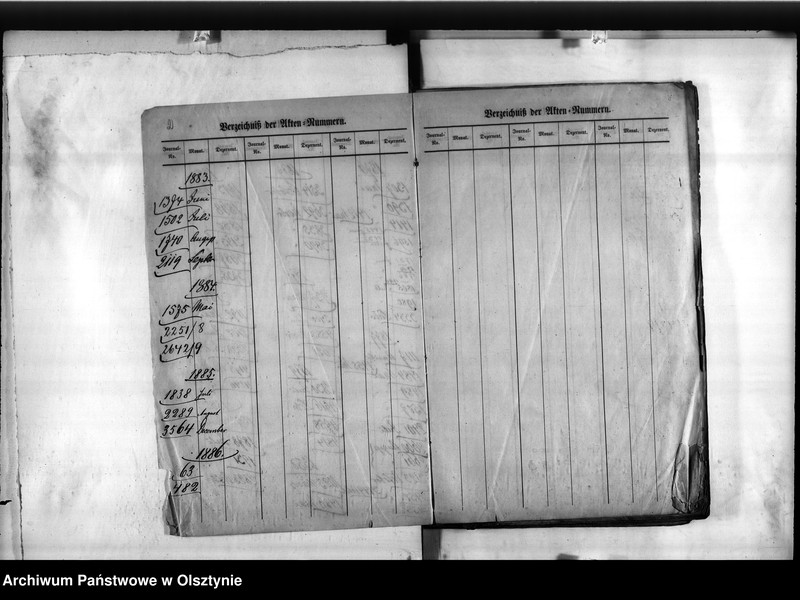 Verzeichniß der Akten-Nummern.
Journal-No. Monat. Dezernent. Journal-No. Monat. Dezernent. Journal-No. Monat. Dezernent.
1883.
1394 Juni
1502 Juli
1740 August
2119 Septbr
1884.
1575 Mai
2251/8
2642/9
1885.
1838 Juli
2289 August
3564 Dezember
1886.
63
482
Verzeichniß der Akten-Nummern.
Journal-No. Monat. Dezernent. Journal-No. Monat. Dezernent. Journal-No. Monat. Dezernent.
Archiwum Państwowe w Olsztynie